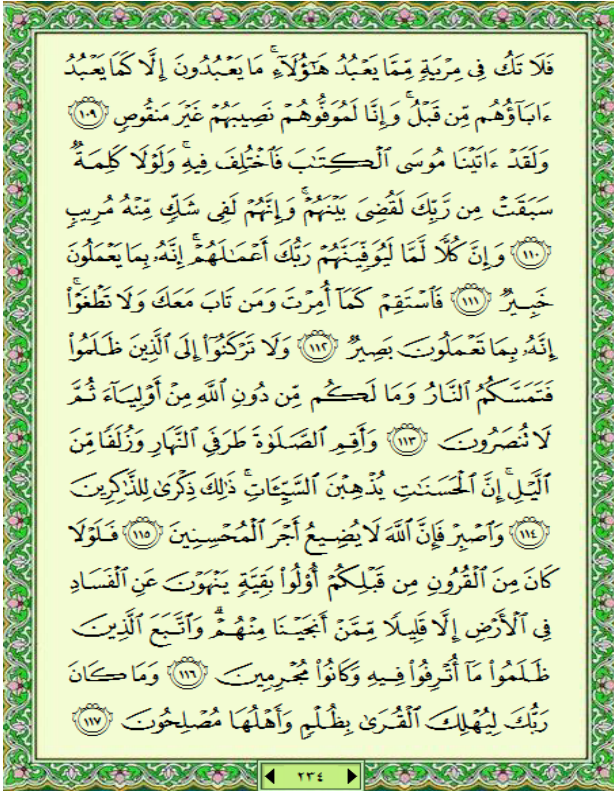 فَلَا تَكُ فِى مِرْيَةٍ مِّمَّا يَعْبُدُ هَٰٓؤُلَآءِ ۚ مَا يَعْبُدُونَ إِلَّا كَمَا يَعْبُدُ
ءَابَآؤُهُم مِّن قَبْلُ ۚ وَإِنَّا لَمُوَفُّوهُمْ نَصِيبَهُمْ غَيْرَ مَنقُوصٍ ﴿١٠٩﴾
وَلَقَدْ ءَاتَيْنَا مُوسَى ٱلْكِتَٰبَ فَٱخْتُلِفَ فِيهِ ۚ وَلَوْلَا كَلِمَةٌ
سَبَقَتْ مِن رَّبِّكَ لَقُضِىَ بَيْنَهُمْ ۚ وَإِنَّهُمْ لَفِى شَكٍّ مِّنْهُ مُرِيبٍ
﴿١١٠﴾ وَإِنَّ كُلًّا لَّمَّا لَيُوَفِّيَنَّهُمْ رَبُّكَ أَعْمَٰلَهُمْ ۚ إِنَّهُۥ بِمَا يَعْمَلُونَ
خَبِيرٌ ﴿١١١﴾ فَٱسْتَقِمْ كَمَآ أُمِرْتَ وَمَن تَابَ مَعَكَ وَلَا تَطْغَوْا۟ ۚ
إِنَّهُۥ بِمَا تَعْمَلُونَ بَصِيرٌ ﴿١١٢﴾ وَلَا تَرْكَنُوٓا۟ إِلَى ٱلَّذِينَ ظَلَمُوا۟
فَتَمَسَّكُمُ ٱلنَّارُ وَمَا لَكُم مِّن دُونِ ٱللَّهِ مِنْ أَوْلِيَآءَ ثُمَّ
لَا تُنصَرُونَ ﴿١١٣﴾ وَأَقِمِ ٱلصَّلَوٰةَ طَرَفَىِ ٱلنَّهَارِ وَزُلَفًا مِّنَ
ٱلَّيْلِ ۚ إِنَّ ٱلْحَسَنَٰتِ يُذْهِبْنَ ٱلسَّيِّـَٔاتِ ۚ ذَٰلِكَ ذِكْرَىٰ لِلذَّٰكِرِينَ
﴿١١٤﴾ وَٱصْبِرْ فَإِنَّ ٱللَّهَ لَا يُضِيعُ أَجْرَ ٱلْمُحْسِنِينَ ﴿١١٥﴾ فَلَوْلَا
كَانَ مِنَ ٱلْقُرُونِ مِن قَبْلِكُمْ أُو۟لُوا۟ بَقِيَّةٍ يَنْهَوْنَ عَنِ ٱلْفَسَادِ
فِى ٱلْأَرْضِ إِلَّا قَلِيلًا مِّمَّنْ أَنجَيْنَا مِنْهُمْ ۗ وَٱتَّبَعَ ٱلَّذِينَ
ظَلَمُوا۟ مَآ أُتْرِفُوا۟ فِيهِ وَكَانُوا۟ مُجْرِمِينَ ﴿١١٦﴾ وَمَا كَانَ
رَبُّكَ لِيُهْلِكَ ٱلْقُرَىٰ بِظُلْمٍ وَأَهْلُهَا مُصْلِحُونَ ﴿١١٧﴾
٢٣٤